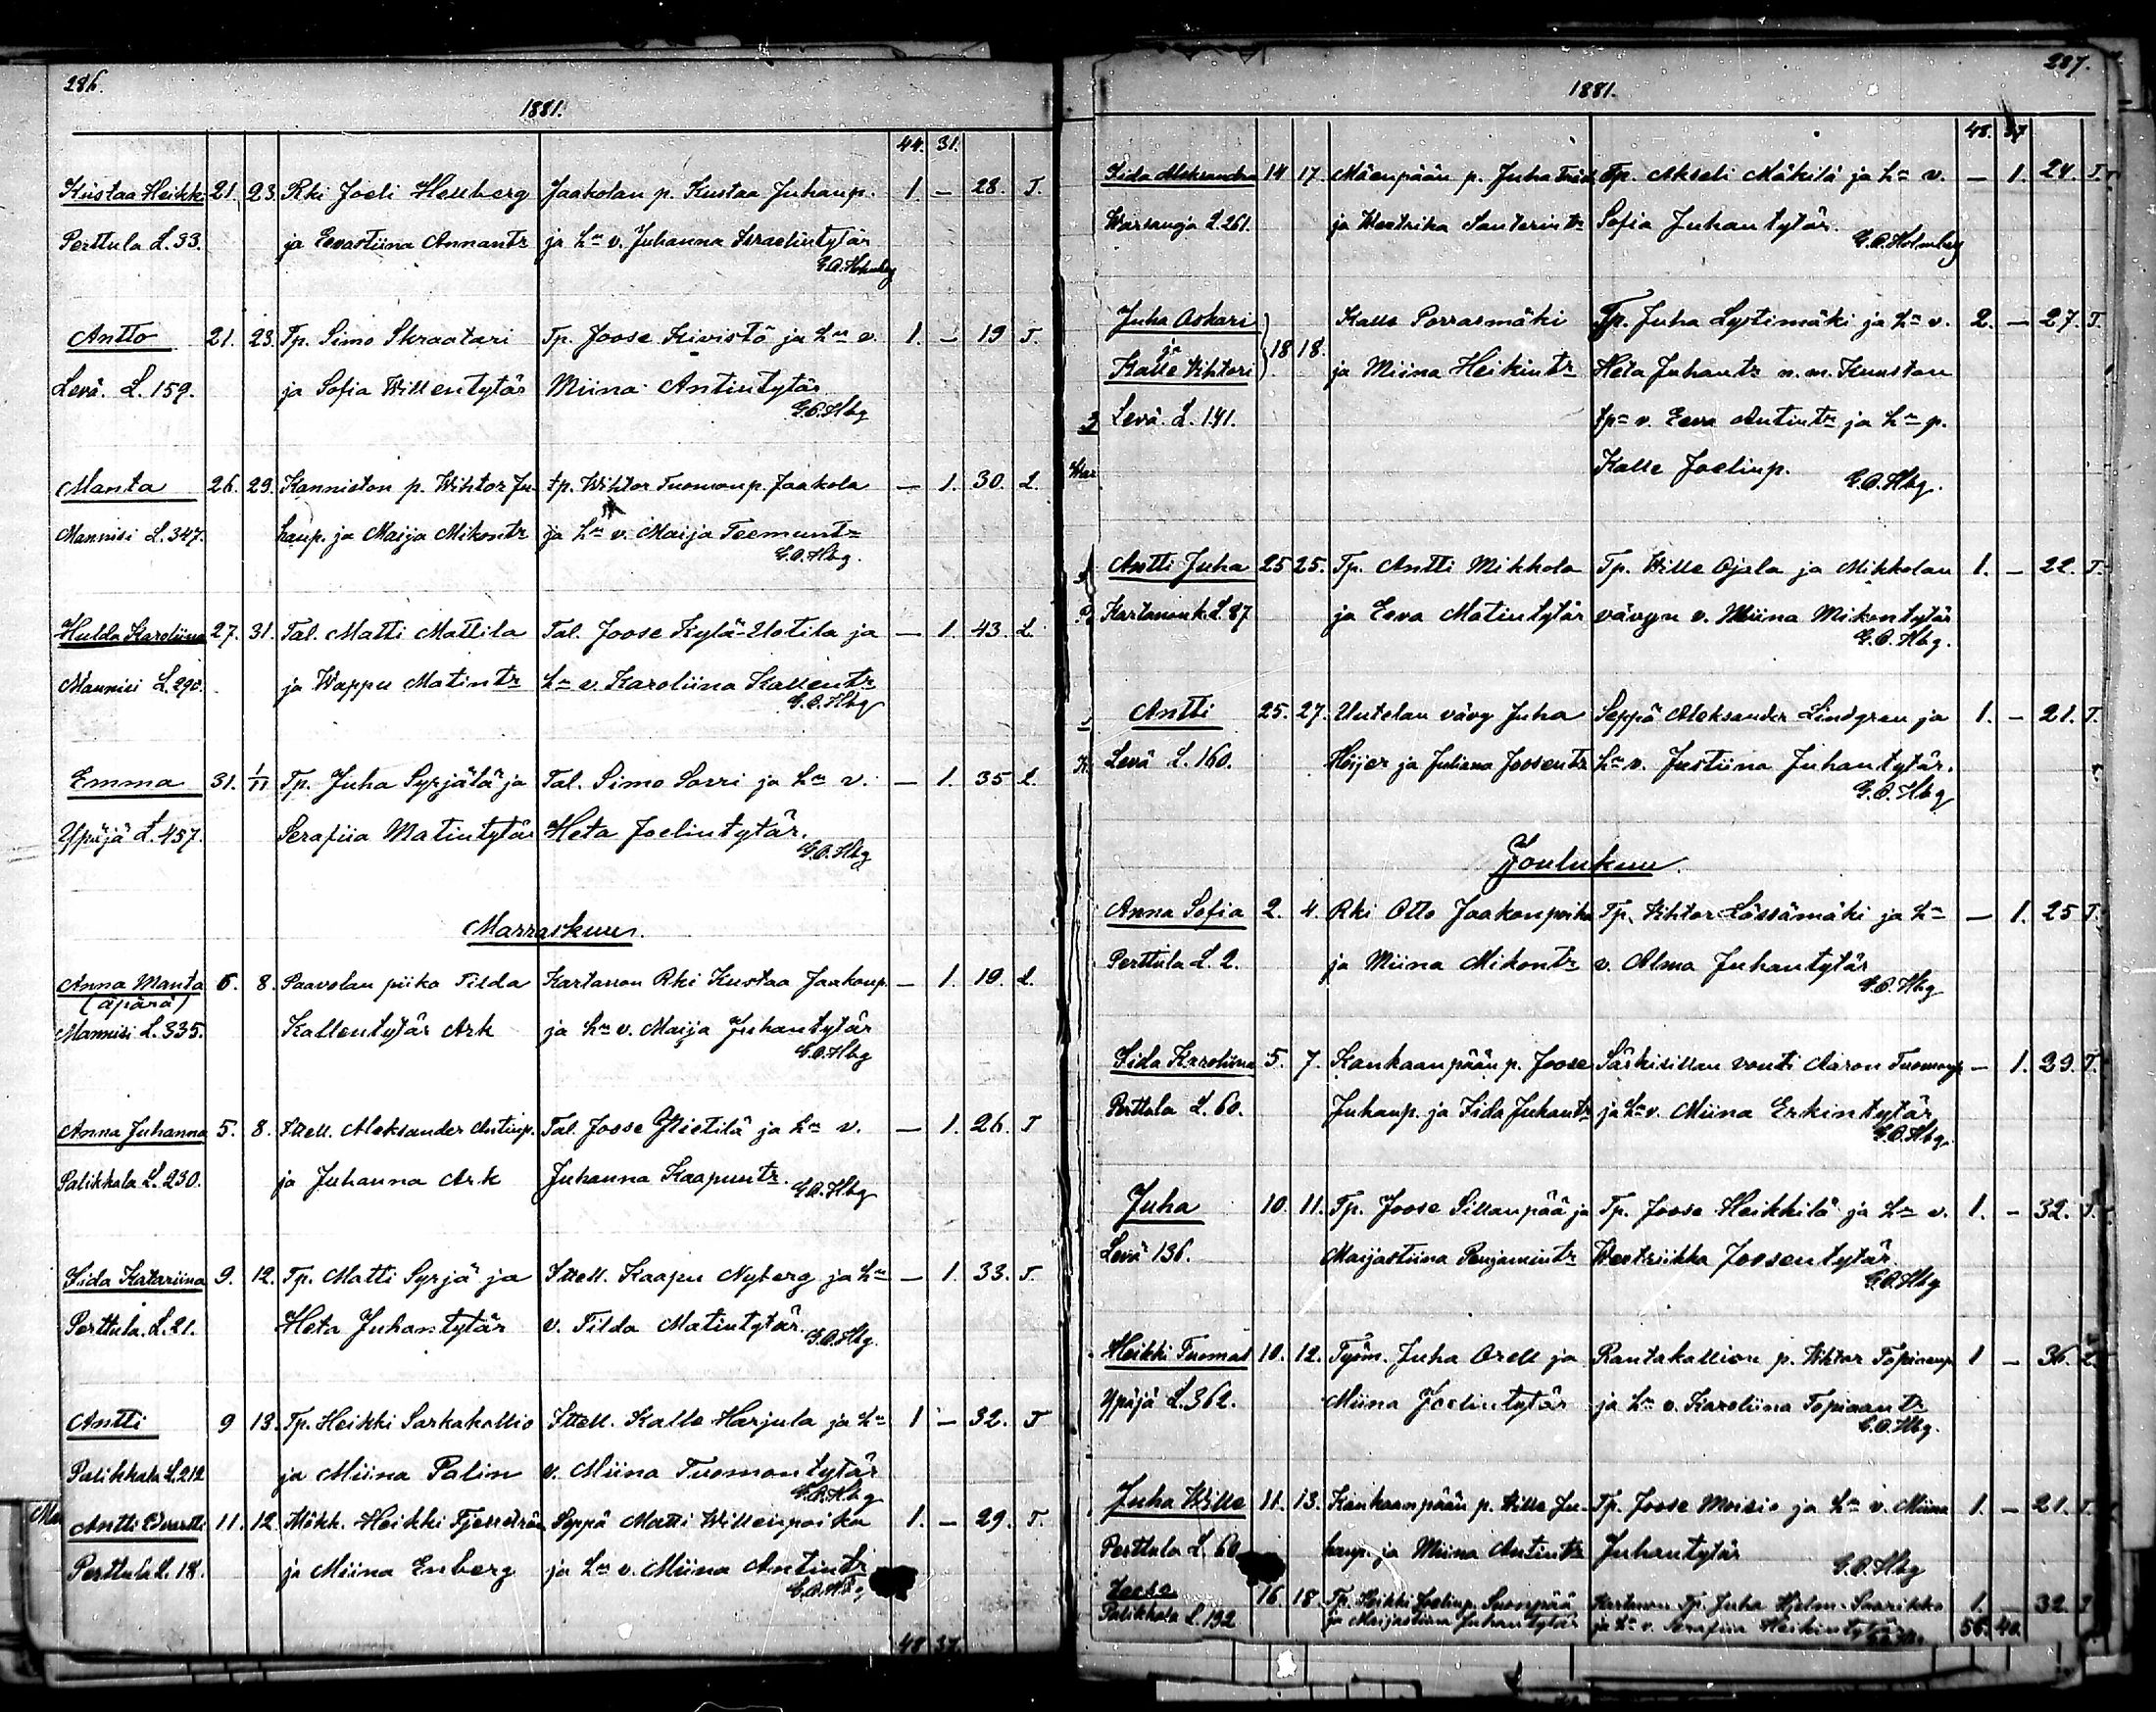 286.
1881.
44. 31.
Kustaa Heikki 21. 23. Rki Joeli Hellberg Jaakolan p. Kustaa Juhanp. 1. – 28. T.
Perttula L. 33. ja Eevastiina Annantr ja hn v. Juhanna Israelintytär
G.A. Holmberg
Antto 21. 23. Tp. Simo Skraatari Tp. Joose Kivistö ja hn v. 1. – 19 T.
Levä. L. 159. ja Sofia Willentytär Miina Antintytär
G.A. Hbg
Manta 26. 29. Kanniston p. Wihtor Ju- tp. Wihtor Tuomanp. Jaakola – 1. 30. L.
Mannisi L. 347. hanp. ja Maija Mikontr ja hn v. Maija Teemuntr
G.A. Hbg.
Hulda Karoliina 27. 31. Tal. Matti Mattila Tal. Joose Kylä-Uotila ja – 1. 43. L.
Mannisi L. 290. ja Wappu Matintr hn v. Karoliina Kallentr
G.A. Hbg
Emma 31. 1/11 Tp. Juha Syrjälä ja Tal. Simo Sorri ja hn v. – 1. 35 L.
Ypäjä L. 457. Serafiia Matintytär Heta Joelintytär.
G.A. Hbg
Marraskuu.
Anna Manta 6. 8. Paavolan piika Tilda Kartanon Rki Kustaa Jaakonp. – 1. 19. L.
(äpärä)
Mannisi L. 335. Kallentytär Ark ja hn v. Maija Juhantytär
G.A. Hbg
Anna Juhanna 5. 8. Ittell. Aleksander Antinp. Tal. Joose Ylietilä ja hn v. – 1. 26. T
Palikkala L. 230. ja Juhanna Ark Juhanna Kaapuntr. G.A. Hbg
Iida Katariina 9. 12. Tp. Matti Syrjä ja Ittell. Kaapu Nyberg ja hn – 1. 33. T.
Perttula. L. 21. Heta Juhantytär v. Tilda Matintytär. G.A. Hbg.
Antti 9 13. Tp. Heikki Sarkakallio Ittell. Kalle Harjula ja hn 1 – 32. T
Palikkala L. 212 ja Miina Palin v. Miina Tuomantytär
G.A. Hbg
Antti Edvartti 11. 12. Mökk. Heikki Fjerström Seppä Matti Willenpoika 1. – 29. T.
Perttula L. 18. ja Miina Enberg ja hn v. Miina Antintr
G.A. Hbg
48 37.
287.
1881.
48. 37
Iida Aleksandra 14 17. Mäenpään p. Juha Tp. Akseli Mäkilä ja hn v. – 1. 24. T.
Warsanoja L. 261. ja Weetrika Santerintr Sofia Juhantytär.
G.A. Holmberg
Juha Oskari Kalle Porrasmäki Tp. Juha Lystimäki ja hn v. 2. – 27. T.
ja 18 18.
Kalle Wihtori ja Miina Heikintr Heta Juhantr n. m. Kuuston
Levä. L. 141. tpn v. Eeva Antintr ja hn p.
Kalle Joelinp.
G.A. Hbg.
Antti Juha 25 25. Tp. Antti Mikkola Tp. Wille Ojala ja Mikkolan 1. – 22. T.
Kartanonk. L. 87 ja Eeva Matintytär vävyn v. Miina Mikontytär
G.A. Hbg.
Antti 25. 27. Uutelan vävy Juha Seppä Aleksander Lindgren ja 1. – 21. T.
Levä L. 160. Höijer ja Juliana Joosentr hn v. Justiina Juhantytär.
G.A. Hbg
Joulukuu.
Anna Sofia 2. 4. Rki Otto Jaakonpoika Tp. Wihtor Lössämäki ja hn – 1. 25 T.
Perttula L. 2. ja Miina Mikontr v. Alma Juhantytär
G.A. Hbg
Iida Karoliina 5. 7. Kankaanpään p. Joose Särkisillan vouti Aaron Tuomanp – 1. 29. T.
Perttula L. 60. Juhanp. ja Iida Juhantr ja hn v. Miina Erkintytär
G.A. Hbg.
Juha 10. 11. Tp. Joose Sillanpää ja Tp. Joose Heikkilä ja hn v. 1. – 32. T.
Levä 136. Maijastiina Penjamintr Weetriikka Joosentytär
G.A. Hbg
Heikki Tuomas 10. 12. Työm. Juha Orell ja Rantakallion p. Wihtor Topiaanp 1 – 36. L
Ypäjä L. 362. Miina Joelintytär ja hn v. Karoliina Topiaantr
G.A. Hbg.
Juha Wille 11. 13. Kankaanpään p. Wille Ju- Tp. Joose Moisio ja hn v. Miina 1. – 21. T.
Perttula L. 60. hanp. ja Miina Antintr Juhantytär
G.A. Hbg
Joose 16 18. Tp. Heikki Joelinp. Suonpää Kartanon Tp. Juha Hjelm-Saarikko 1. – 32. T
Palikkala L. 192 ja Maijastiina Juhantytär ja hn v. Serafiia Heikintytär 56. 40.